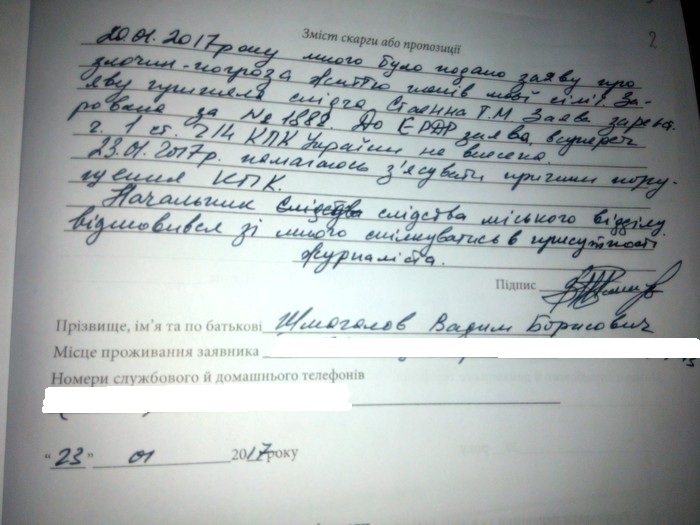 Зміст скарги або пропозиції
2
20.01.2017 року мною було подано заяву про
злочин-погроза життю членів моєї сім'ї. За-
яву прийняла слідча Т.М Заява зареєст.
рована за № 1888. До ЄРДР заява, всупереч
ч. 1 ст. 214 КПК України не внесена.
23.01.2017р. намагаюсь з'ясувати причини пору-
шення КПК.
Начальник слідства міського відділу
відмовився зі мною спілкуватись в присутності
журналіста.
Підпис
Прізвище, ім'я та по батькові Шмоголов Вадим Борисович
Місце проживання заявника
Номери службового й домашнього телефонів
" 23 " 01 2017 року